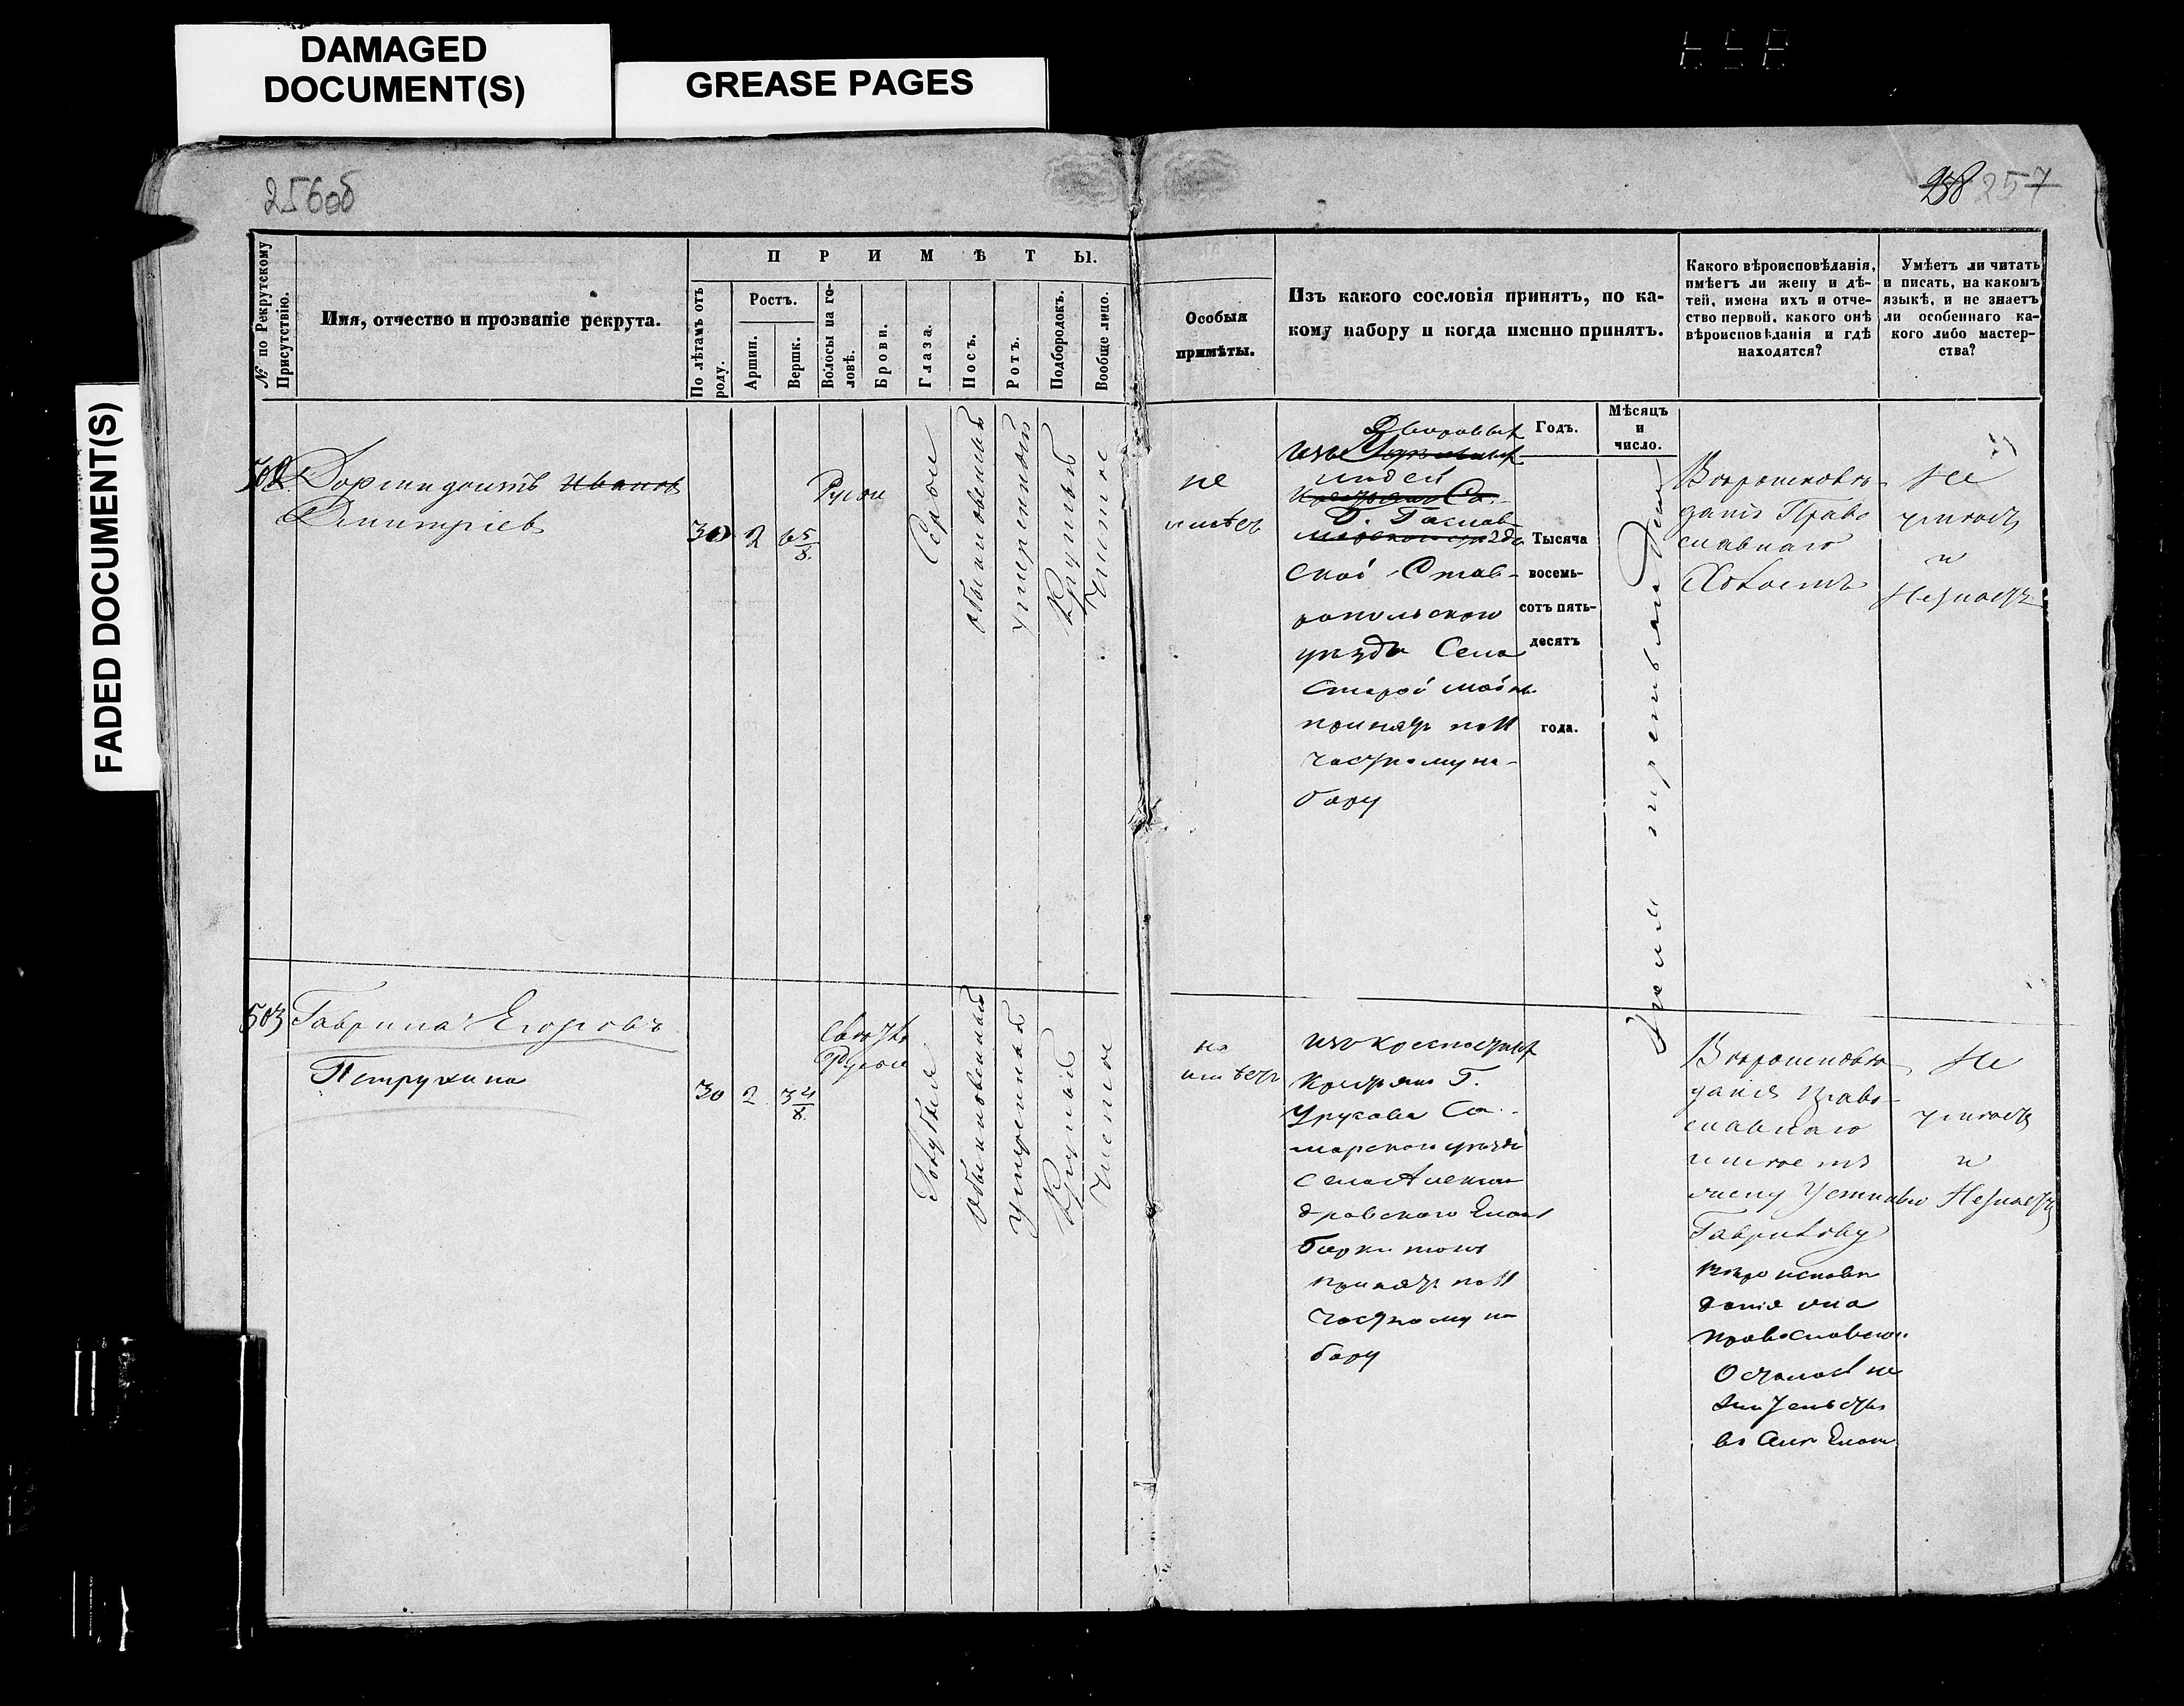 DAMAGED
DOCUMENT(S)
GREASE PAGES
FADED DOCUMENT(S)
256об
258 257
№ по Рекрутскому
Присутствію.
Имя, отчество и прозваніе рекрута.
П Р И М Ѣ Т Ы.
По лѣтамъ отъ
роду.
Ростъ.
Аршин.
Вершк.
Волосы на го-
ловѣ.
Брови.
Глаза.
Носъ.
Ротъ.
Подбородокъ.
Вообще лицо.
Особыя
примѣты.
Изъ какого сословія принятъ, по ка-
кому набору и когда именно принятъ.
Какого вѣроисповѣданія,
имѣетъ ли жену и дѣ-
тей, имена ихъ и отче-
ство первой, какого онѣ
вѣроисповѣданія и гдѣ
находятся?
Умѣетъ ли читать
и писать, на какомъ
языкѣ, и не знаетъ
ли особеннаго ка-
кого либо мастер-
ства?
502
Дормидонтъ Ивановъ
Дмитріев
30
2
6 5/8
Русые
Серые
обыкновенный
умеренный
Круглый
Чистое
не
имѣет
Дворовых
изъ
людей
Крестьян Са-
Г.
ской Став-
ропольскаго
уѣзда Села
Старой Май
принят по 11
частному на-
бору
Годъ.
Тысяча
восемь-
сотъ пять-
десятъ
года.
Мѣсяцъ
и
число.
Вѣроисповѣ
данія Право
славнаго
Холостъ
Не
умѣетъ
и
Незнаетъ
503
Гаврила Егоровъ
Петрухина
30
2
3 4/8
Светло
Русые
Голубые
Обыкновенный
умеренный
Круглый
Чистое
не
имѣетъ
изъ крепостных
Крестьян Г.
Урусова Са-
марскаго уѣзда
Села Алексан
дровскаго Елан
тожъ
принятъ по 11
частному на
бору
Вѣроисповѣ
данія Право-
славнаго
имѣетъ
жену Устинью
Гаврилову
вѣроисповѣ
данія она
православнаго
Осталась на
жительствѣ
въ Селѣ Елан
Не
умѣетъ
и
Незнаетъ